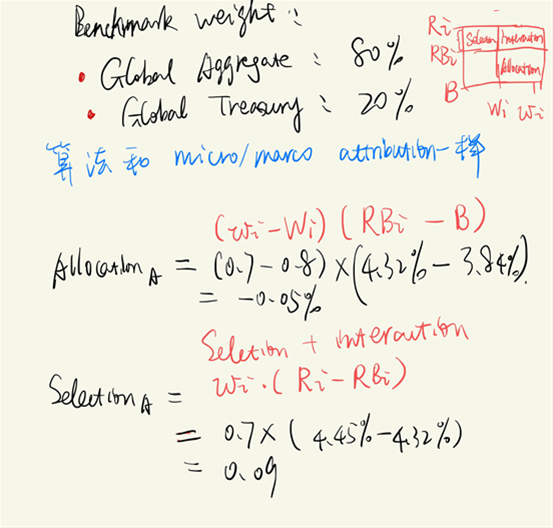 Benchmark weight:
• Global Aggregate: 80%
• Global Treasury: 20%
Ri
RBi
B
Selection
Interaction
Allocation
Wi wi
算法和 micro/marco attribution一样
(wi-Wi) (RBi - B)
Allocation A = (0.7-0.8)×(4.32%-3.84%).
= -0.05%
Seletion + interaction
wi·(Ri-RBi)
Selection A =
= 0.7×(4.45%-4.32%)
= 0.09